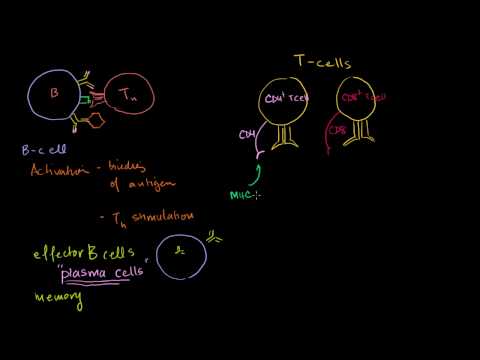 B
Tn
B-cell
Activation - binding
of antigen
- Th stimulation
effector B cells
"plasma cells"
memory
T-cells
CD4+ Tcell
CD8+ Tcell
CD4
CD8
MHC-